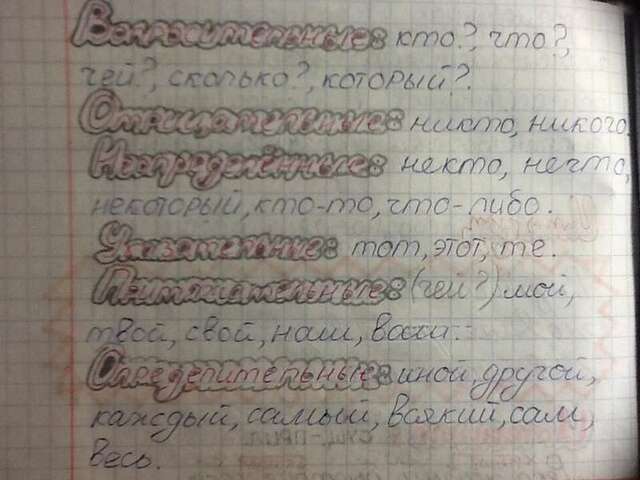 Вопросительные: кто?, что?,
чей?, сколько?, который?.
Отрицательные: никто, никого.
Неопределённые: некто, нечто,
некоторый, кто-то, что-либо.
Указательные: тот, этот, те.
Притяжательные: (чей?) мой,
твой, свой, наш, ваш.
Определительные: иной, другой,
каждый, самый, всякий, сам,
весь.